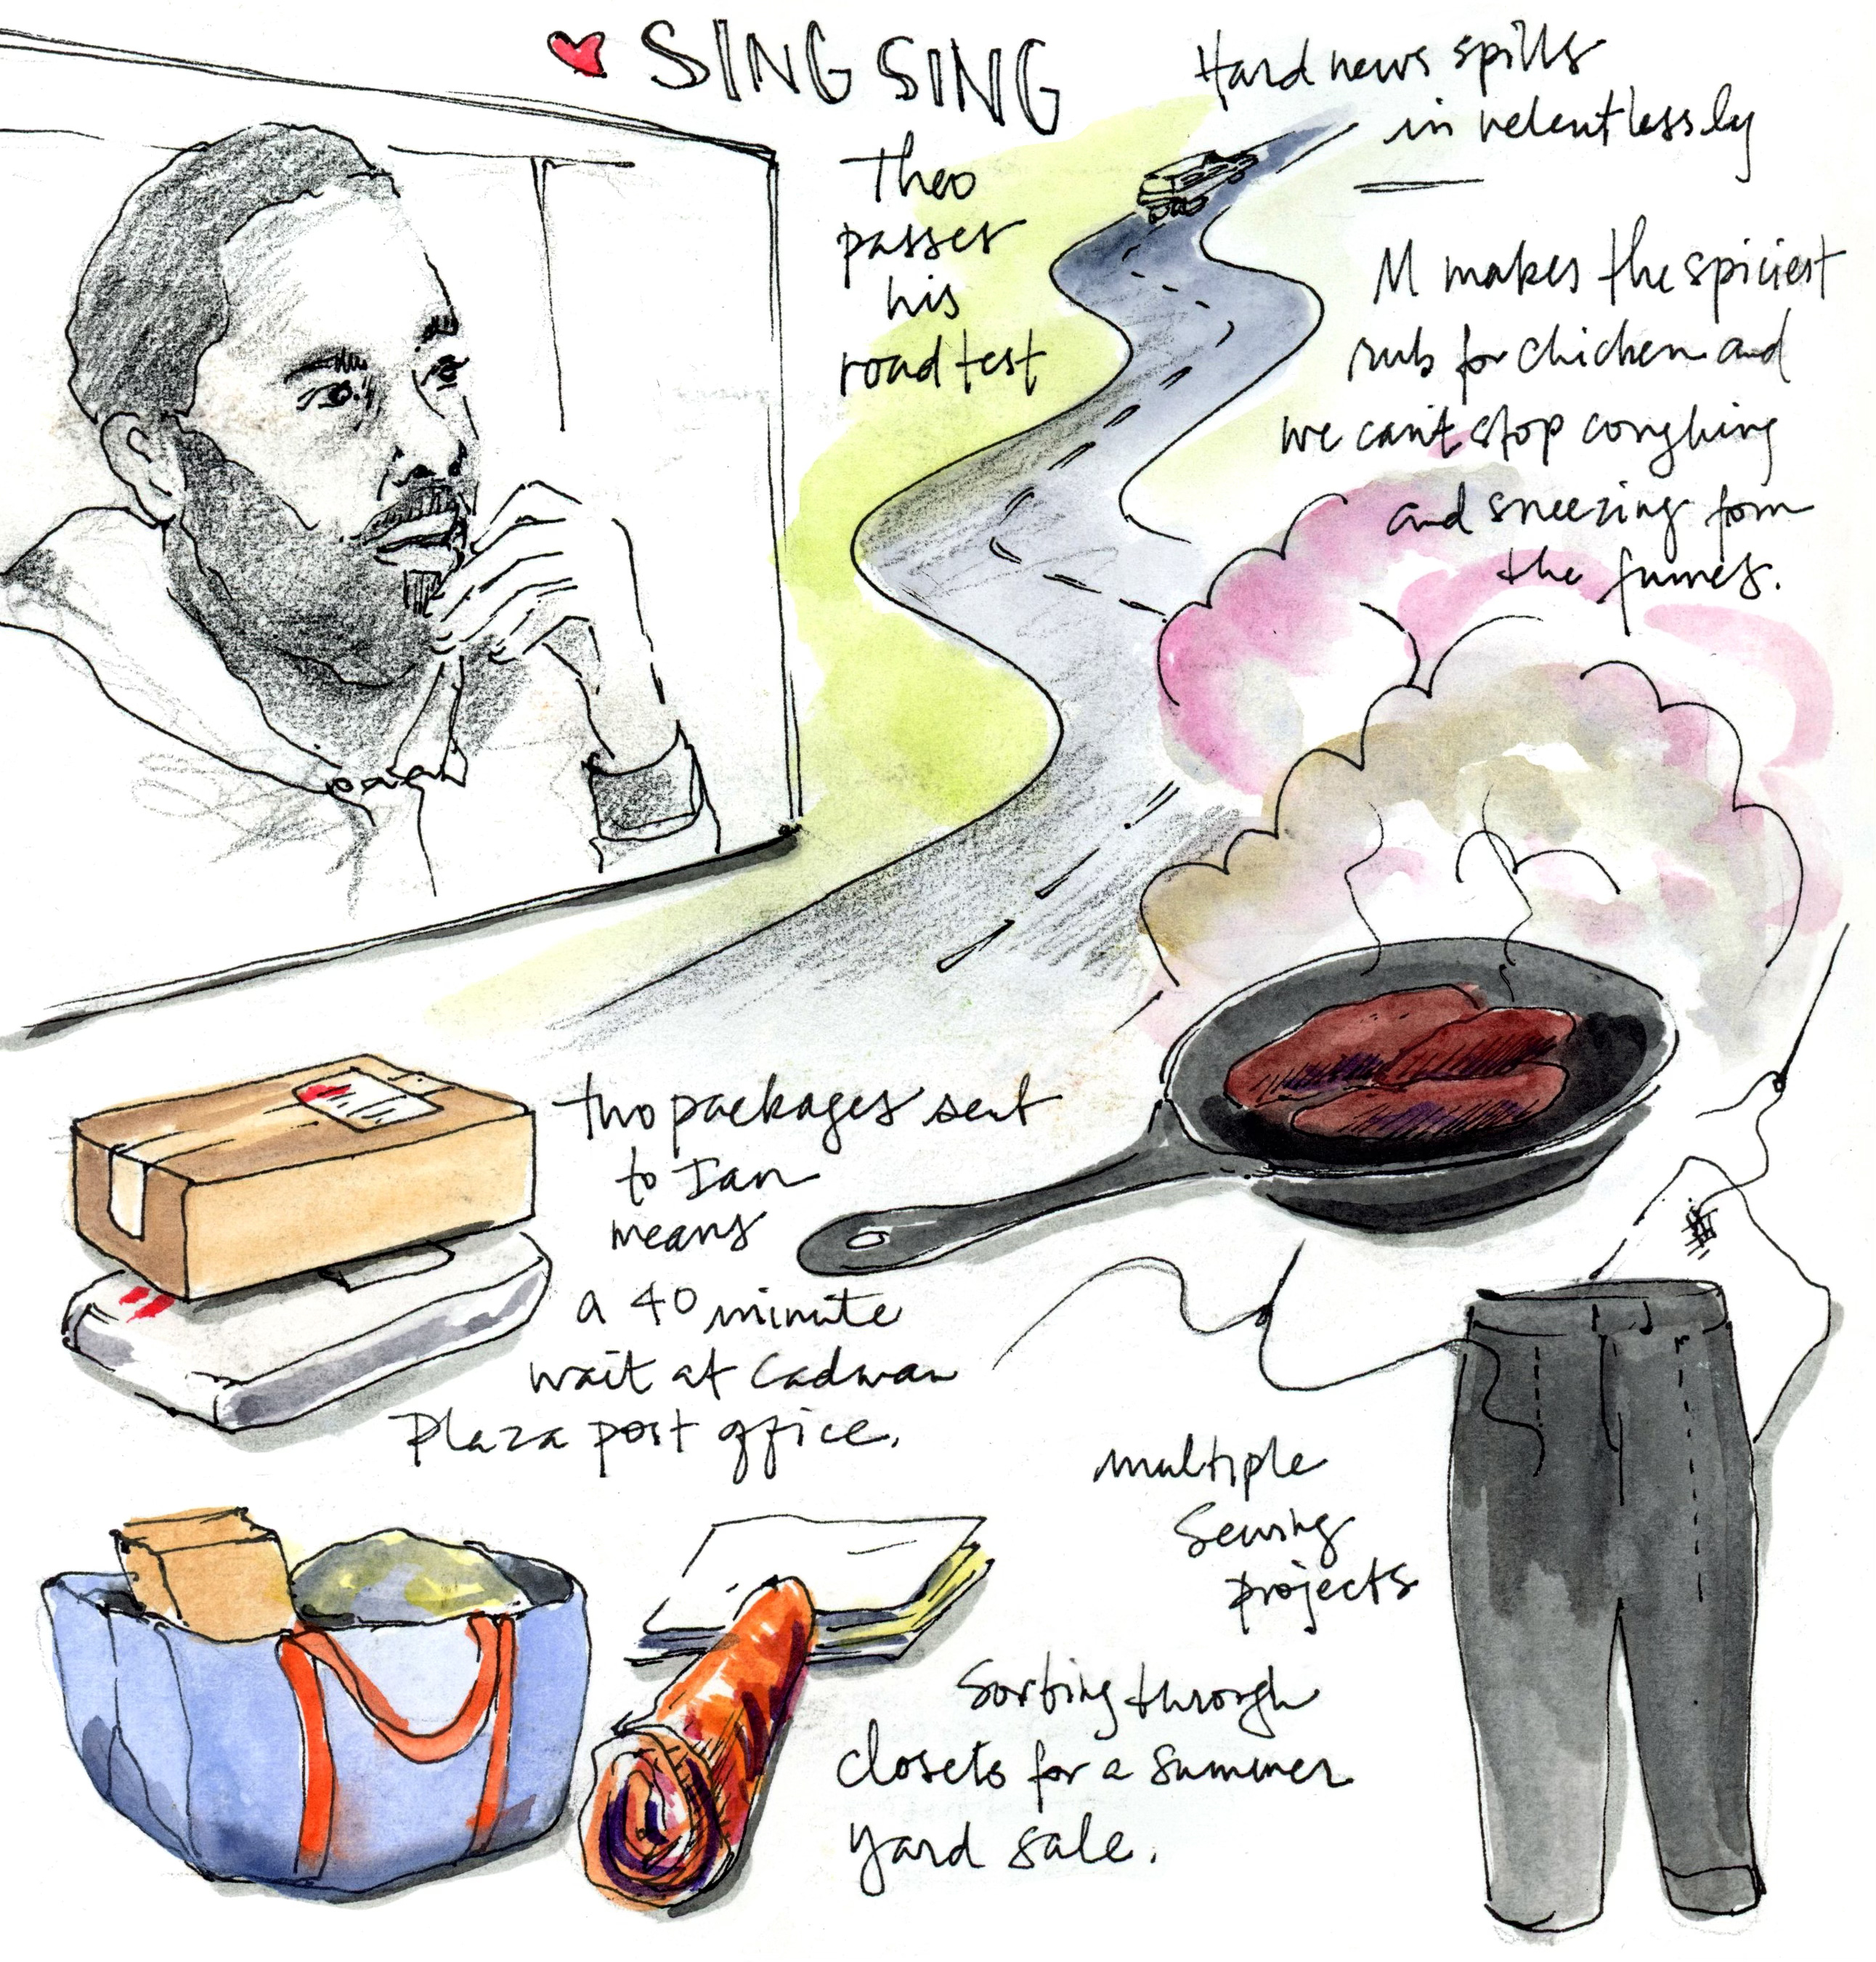 SING SING
Theo
passes
his
road test
Hard news spills
in relentlessly
M makes the spiciest
rub for chicken and
we can't stop coughing
and sneezing from
the fumes.
two packages sent
to Ian
means
a 40 minute
wait at Cadman
Plaza post office.
multiple
Sewing
projects
Sorting through
closets for a summer
yard sale.